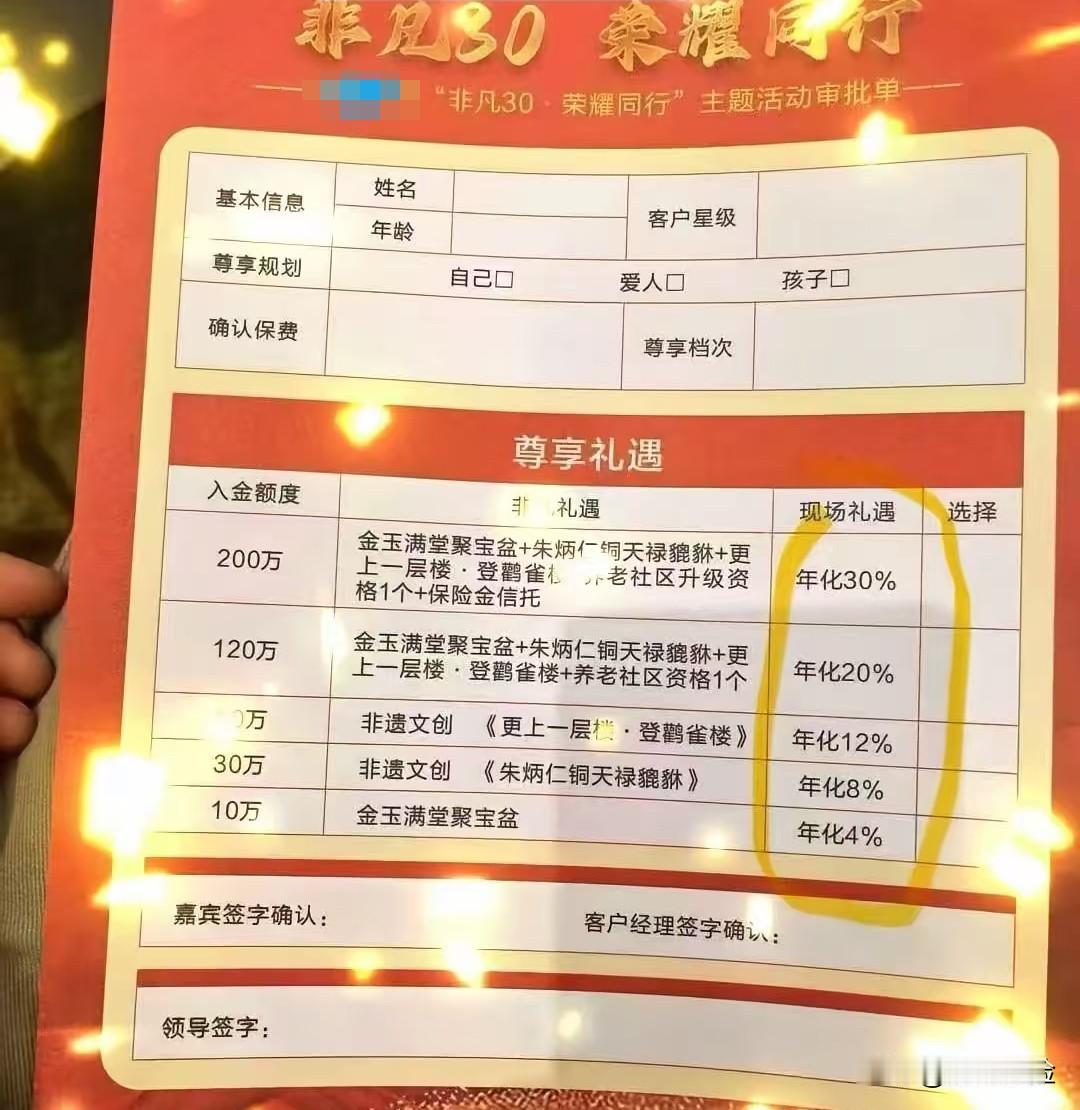 非凡30 荣耀同行
“非凡30·荣耀同行”主题活动审批单
基本信息
姓名
年龄
客户星级
尊享规划
自己□
爱人□
孩子□
确认保费
尊享档次
尊享礼遇
入金额度
非 礼遇
现场礼遇
选择
200万
金玉满堂聚宝盆+朱炳仁铜天禄貔貅+更
上一层楼·登鹳雀楼 养老社区升级资
格1个+保险金信托
年化30%
120万
金玉满堂聚宝盆+朱炳仁铜天禄貔貅+更
上一层楼·登鹳雀楼+养老社区资格1个
年化20%
0万
非遗文创 《更上一层楼·登鹳雀楼》
年化12%
30万
非遗文创 《朱炳仁铜天禄貔貅》
年化8%
10万
金玉满堂聚宝盆
年化4%
嘉宾签字确认：
客户经理签字确认：
领导签字：